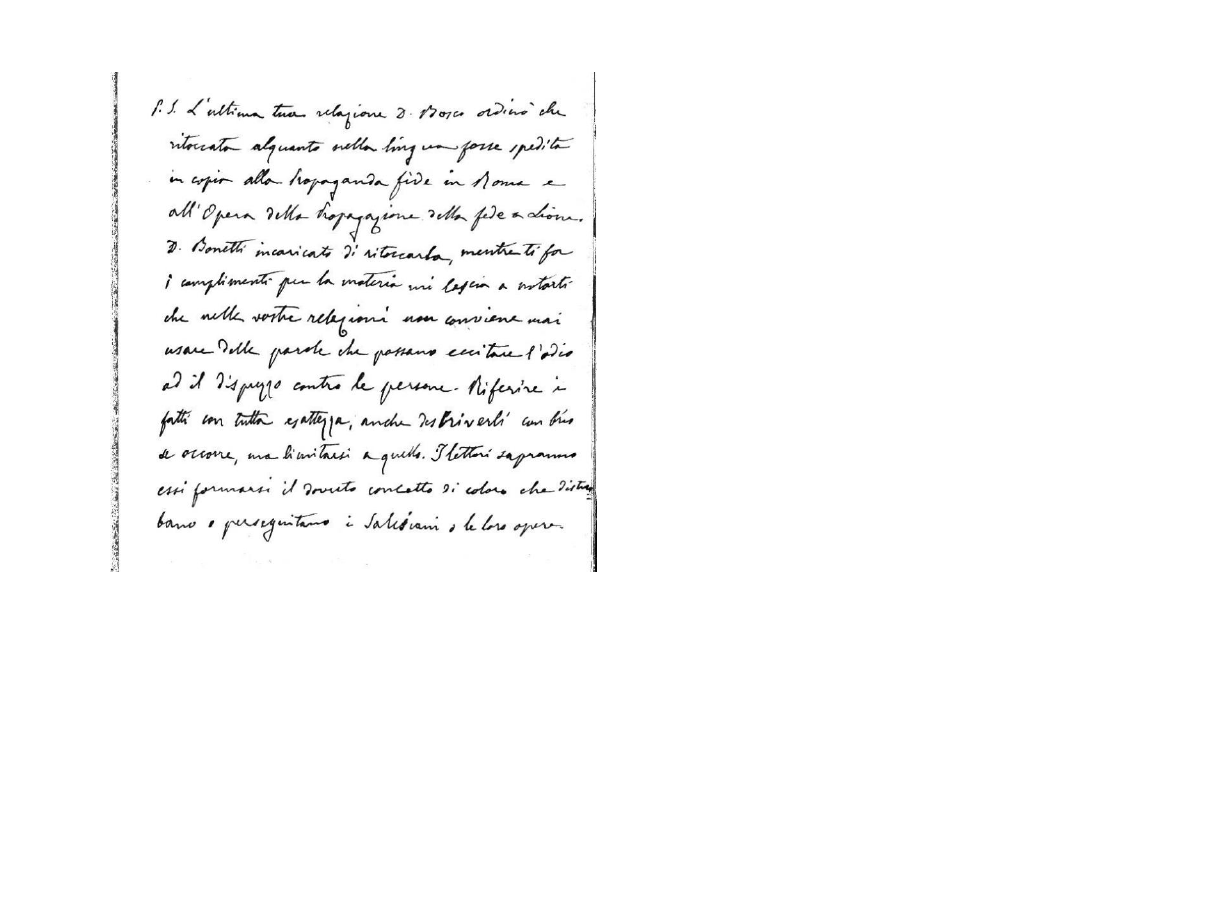 P. S. L'ultima tua relazione D. Bosco ordinò che
ritoccata alquanto nella lingua fosse spedita
in copia alla Propaganda fide in Roma e
all'Opera della Propagazione della fede a Lione.
D. Bonetti incaricato di ritoccarla, mentre ti fa
i complimenti per la materia mi lascia a notarti
che nelle vostre relazioni non conviene mai
usare delle parole che possano eccitare l'odio
od il disprezzo contro le persone. Riferire i
fatti con tutta esattezza, anche descriverli con brio
se occorre, ma limitarsi a quello. I lettori sapranno
essi formarsi il dovuto concetto di coloro che distur
bano o perseguitano i Salesiani o le loro opere